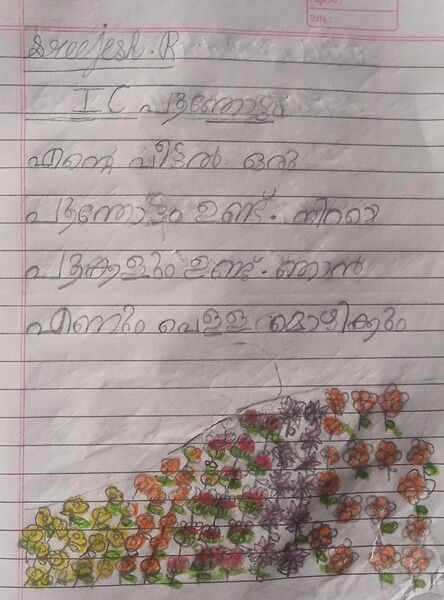 Page No :
Date :
Sreejesh. R
I C പൂന്തോട്ടം
എന്റെ വീട്ടിൽ ഒരു
പൂന്തോട്ടം ഉണ്ട്. നിറയെ
പൂക്കളും ഉണ്ട്. ഞാൻ
എന്നും വെള്ള മൊഴിക്കും